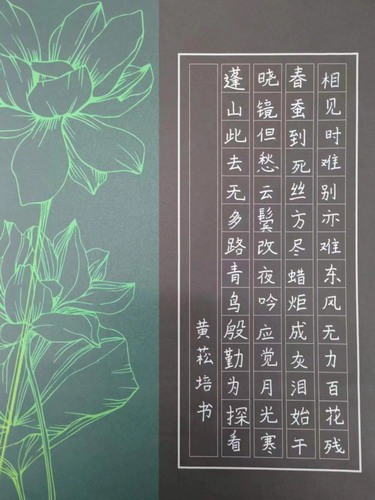 相见时难别亦难东风无力百花残
春蚕到死丝方尽蜡炬成灰泪始干
晓镜但愁云鬓改夜吟应觉月光寒
蓬山此去无多路青鸟殷勤为探看
黄菘培书